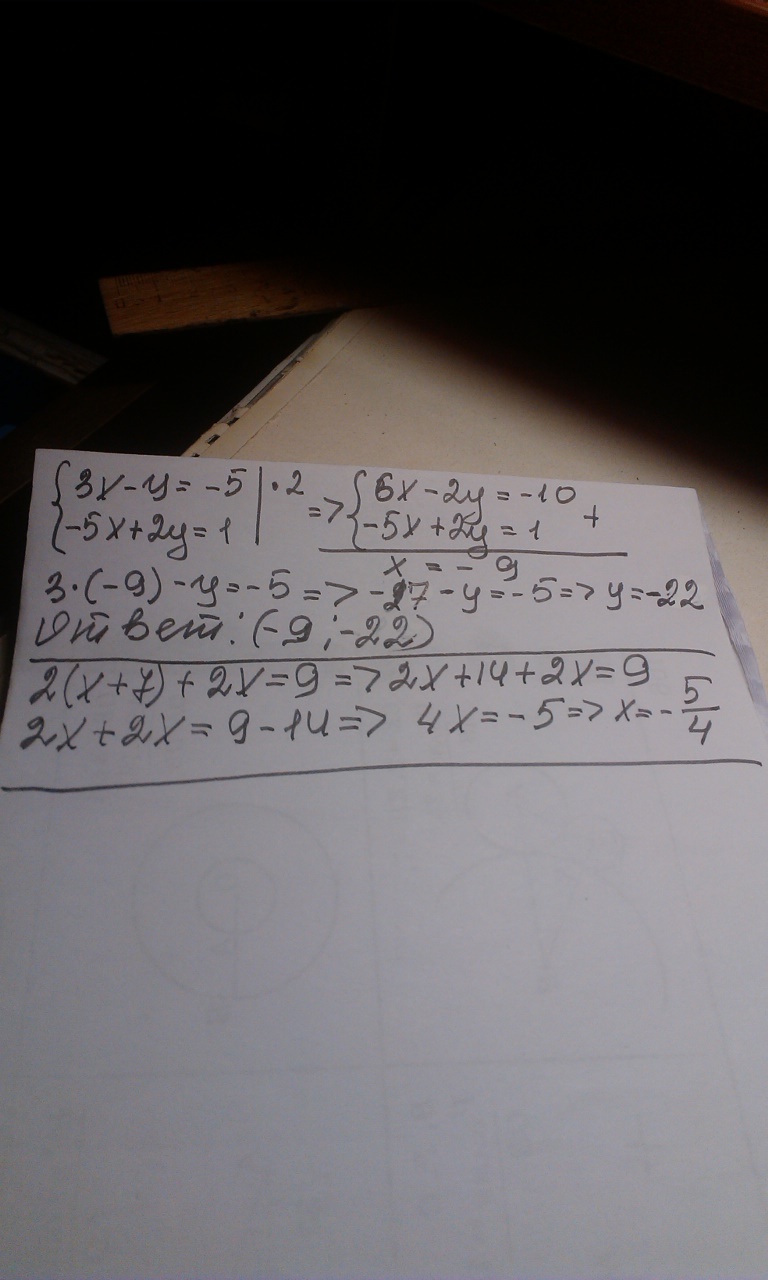 {3x-y=-5 |·2 => {6x-2y=-10 +
{-5x+2y=1 | {-5x+2y=1
x = -9
3·(-9)-y=-5=>-27-y=-5=>y=-22
Ответ: (-9;-22)
2(x+7)+2x=9=>2x+14+2x=9
2x+2x=9-14=> 4x=-5=>x=-5/4